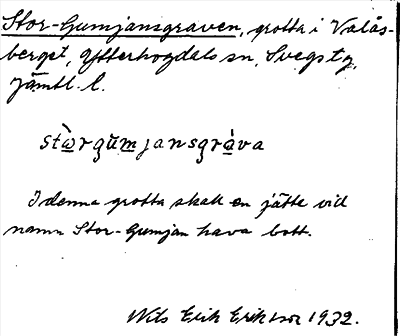 Stor-Gumjansgraven, grotta i Valås-
berget, Ytterhogdals sn, Svegs tg,
Jämtl. l.
stὼrgūmjansgràva
I denna grotta skall en jätte vid
namn Stor-Gumjan hava bott.
Nils Erik Eriksson 1932.